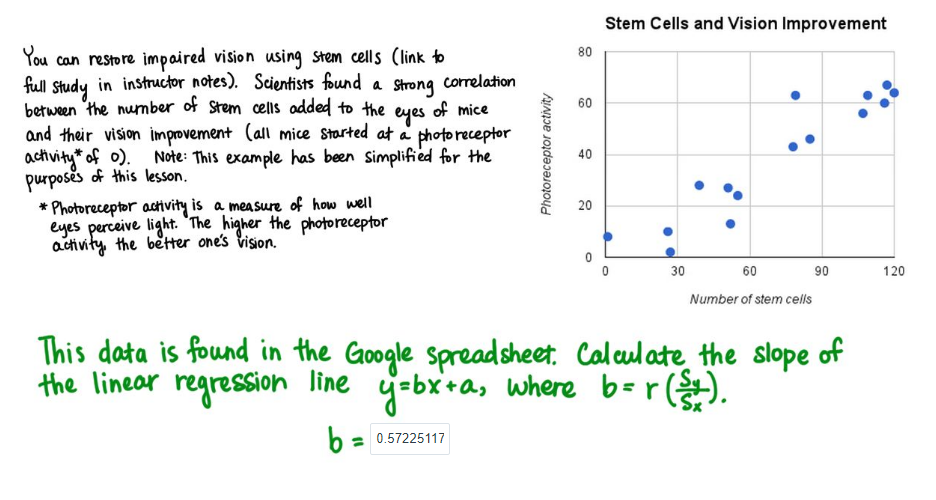 Stem Cells and Vision Improvement
You can restore impaired vision using stem cells (link to
full study in instructor notes). Scientists found a strong correlation
between the number of stem cells added to the eyes of mice
and their vision improvement (all mice started at a photoreceptor
activity* of 0). Note: This example has been simplified for the
purposes of this lesson.
* Photoreceptor activity is a measure of how well
eyes perceive light. The higher the photoreceptor
activity, the better one's vision.
Photoreceptor activity
80
60
40
20
0
0 30 60 90 120
Number of stem cells
This data is found in the Google spreadsheet. Calculate the slope of
the linear regression line y=bx+a, where b=r(Sy/Sx).
b = 0.57225117